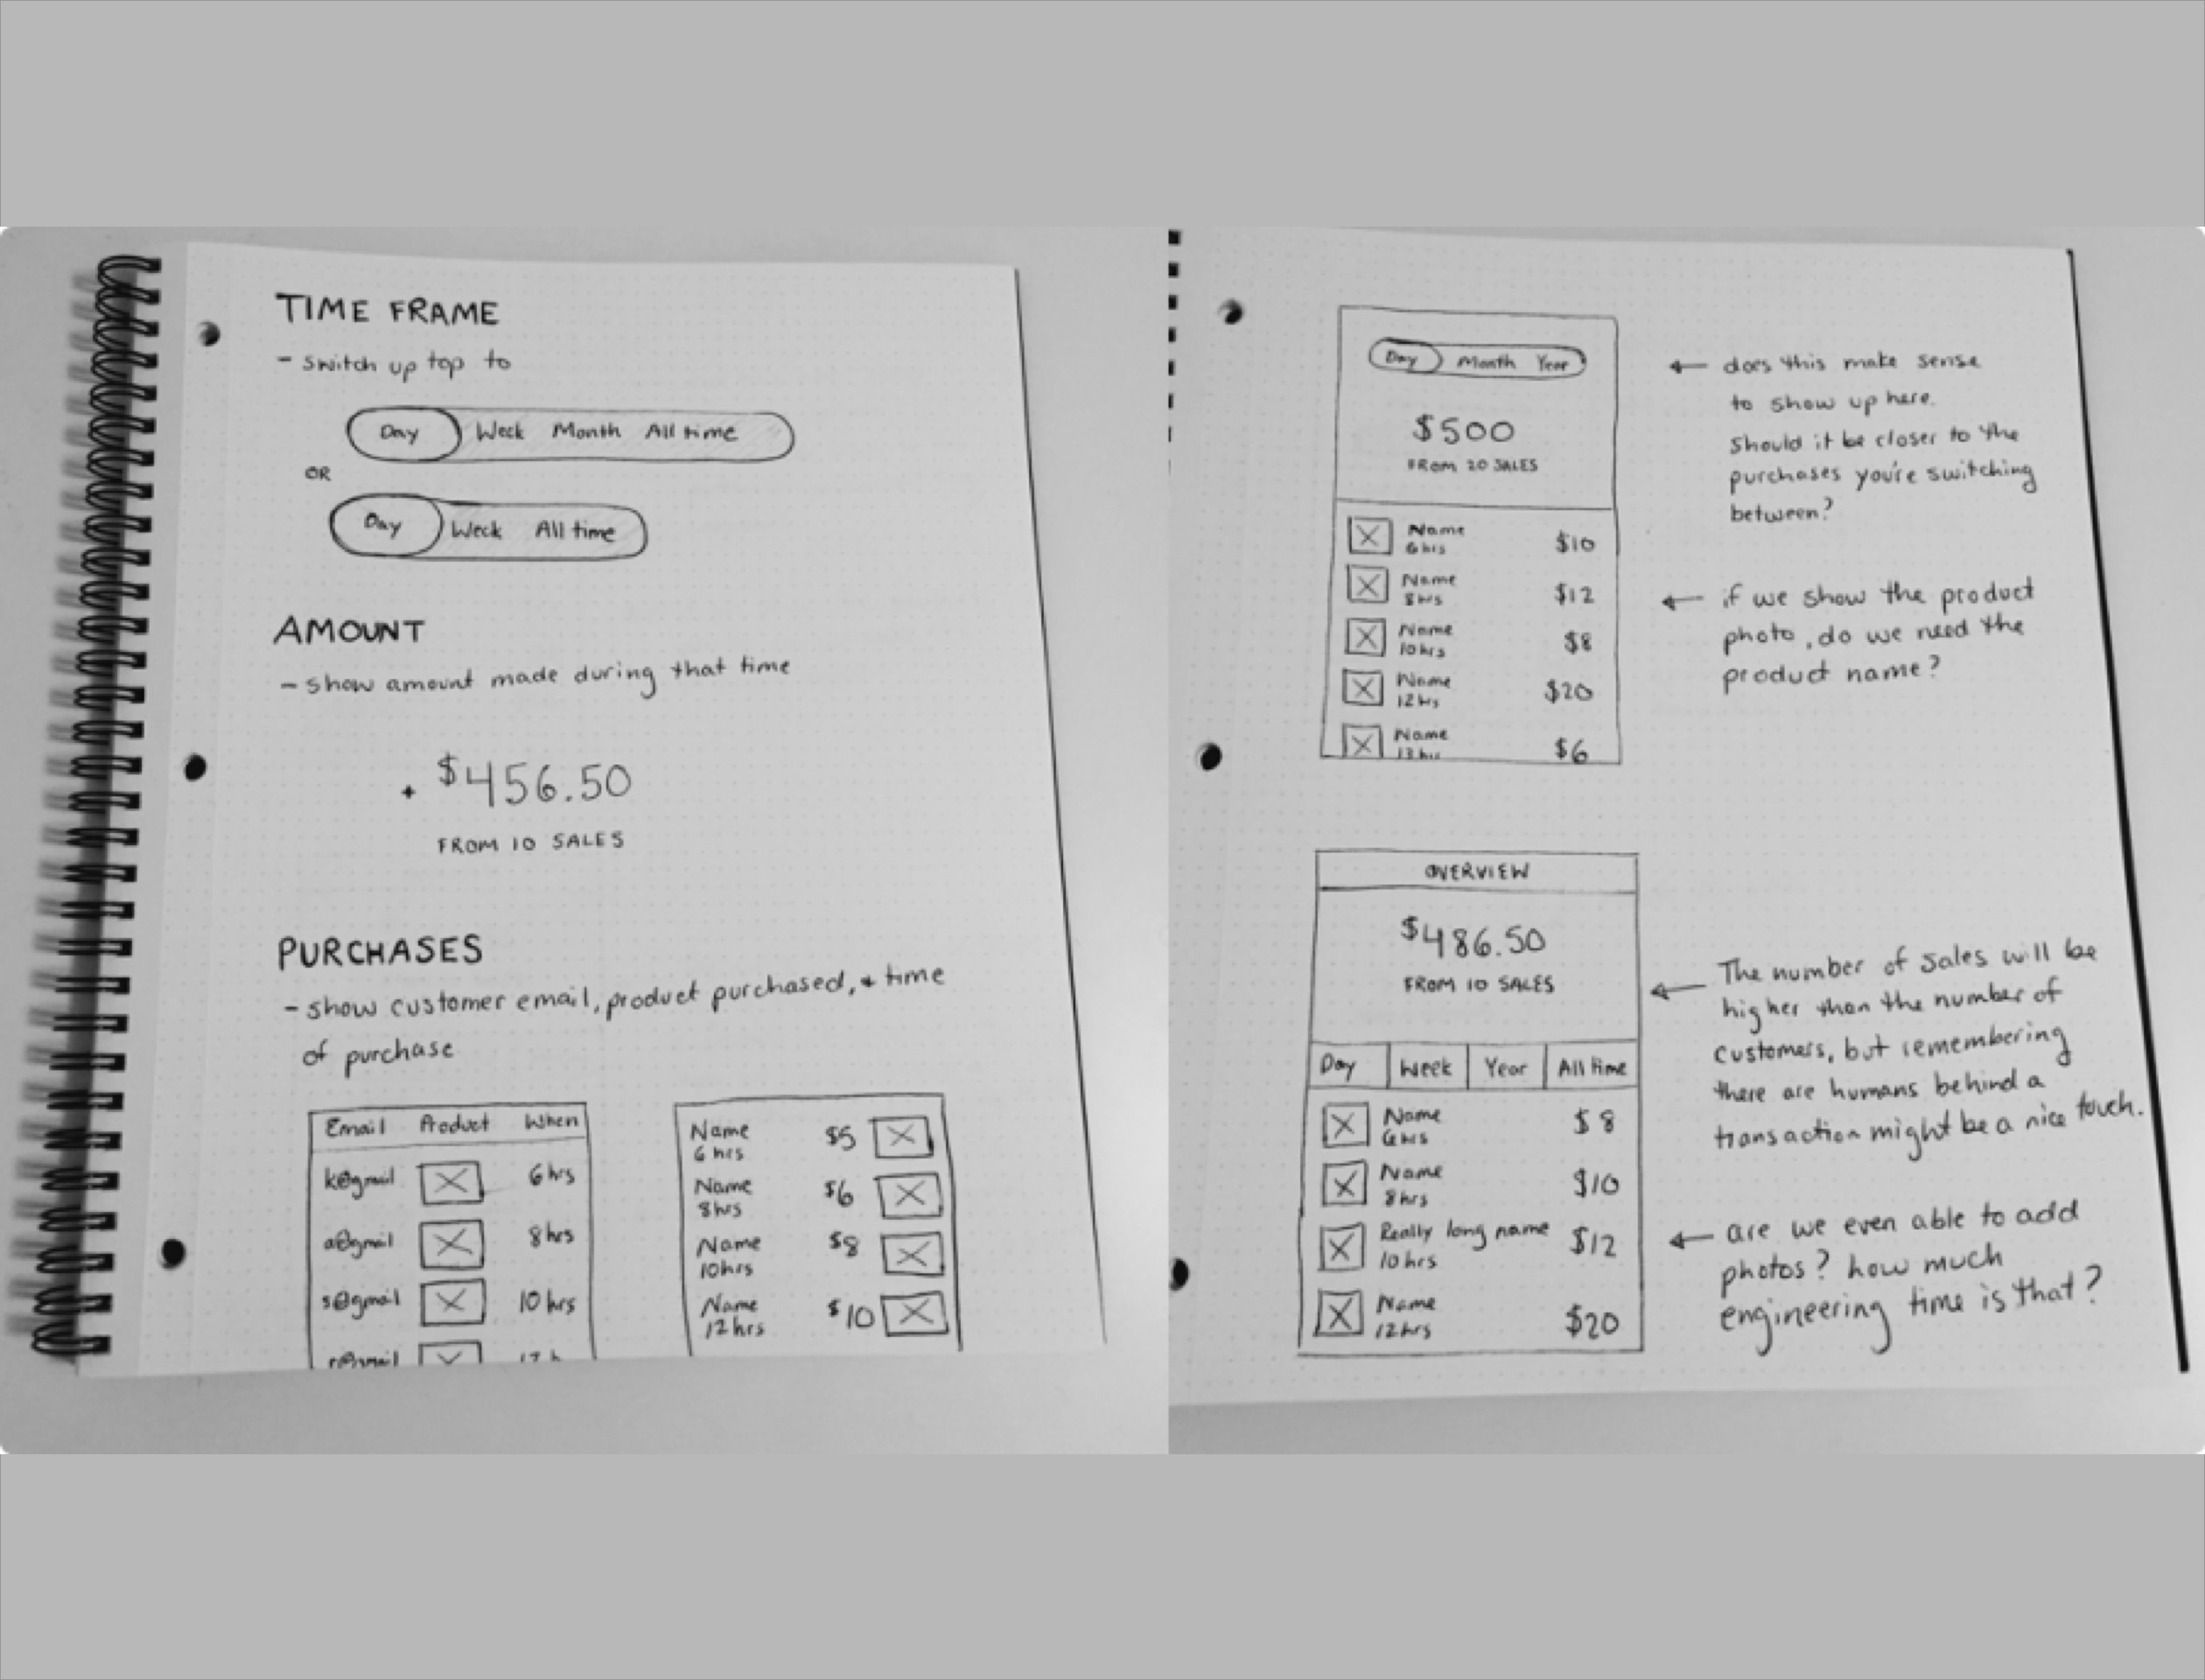 TIME FRAME
- Switch up top to
Day Week Month All time
OR
Day Week All time
AMOUNT
- show amount made during that time
+ $456.50
FROM 10 SALES
PURCHASES
- show customer email, product purchased, + time
of purchase
Email Product When
k@gmail 6hrs
a@gmail 8hrs
s@gmail 10 hrs
Name $5
6 hrs
Name $6
8hrs
Name $8
10hrs
Name $10
12 hrs
Day Month Year
$500
FROM 20 SALES
Name $10
6 hrs
Name $12
8hrs
Name $8
10hrs
Name $20
12hrs
Name $6
13hrs
← does this make sense
to show up here.
Should it be closer to the
purchases you're switching
between?
← if we show the product
photo, do we need the
product name?
OVERVIEW
$486.50
FROM 10 SALES
Day Week Year All time
Name $8
6hrs
Name $10
8hrs
Really long name $12
10hrs
Name $20
12hrs
← The number of sales will be
higher than the number of
customers, but remembering
there are humans behind a
transaction might be a nice touch.
← are we even able to add
photos? how much
engineering time is that?